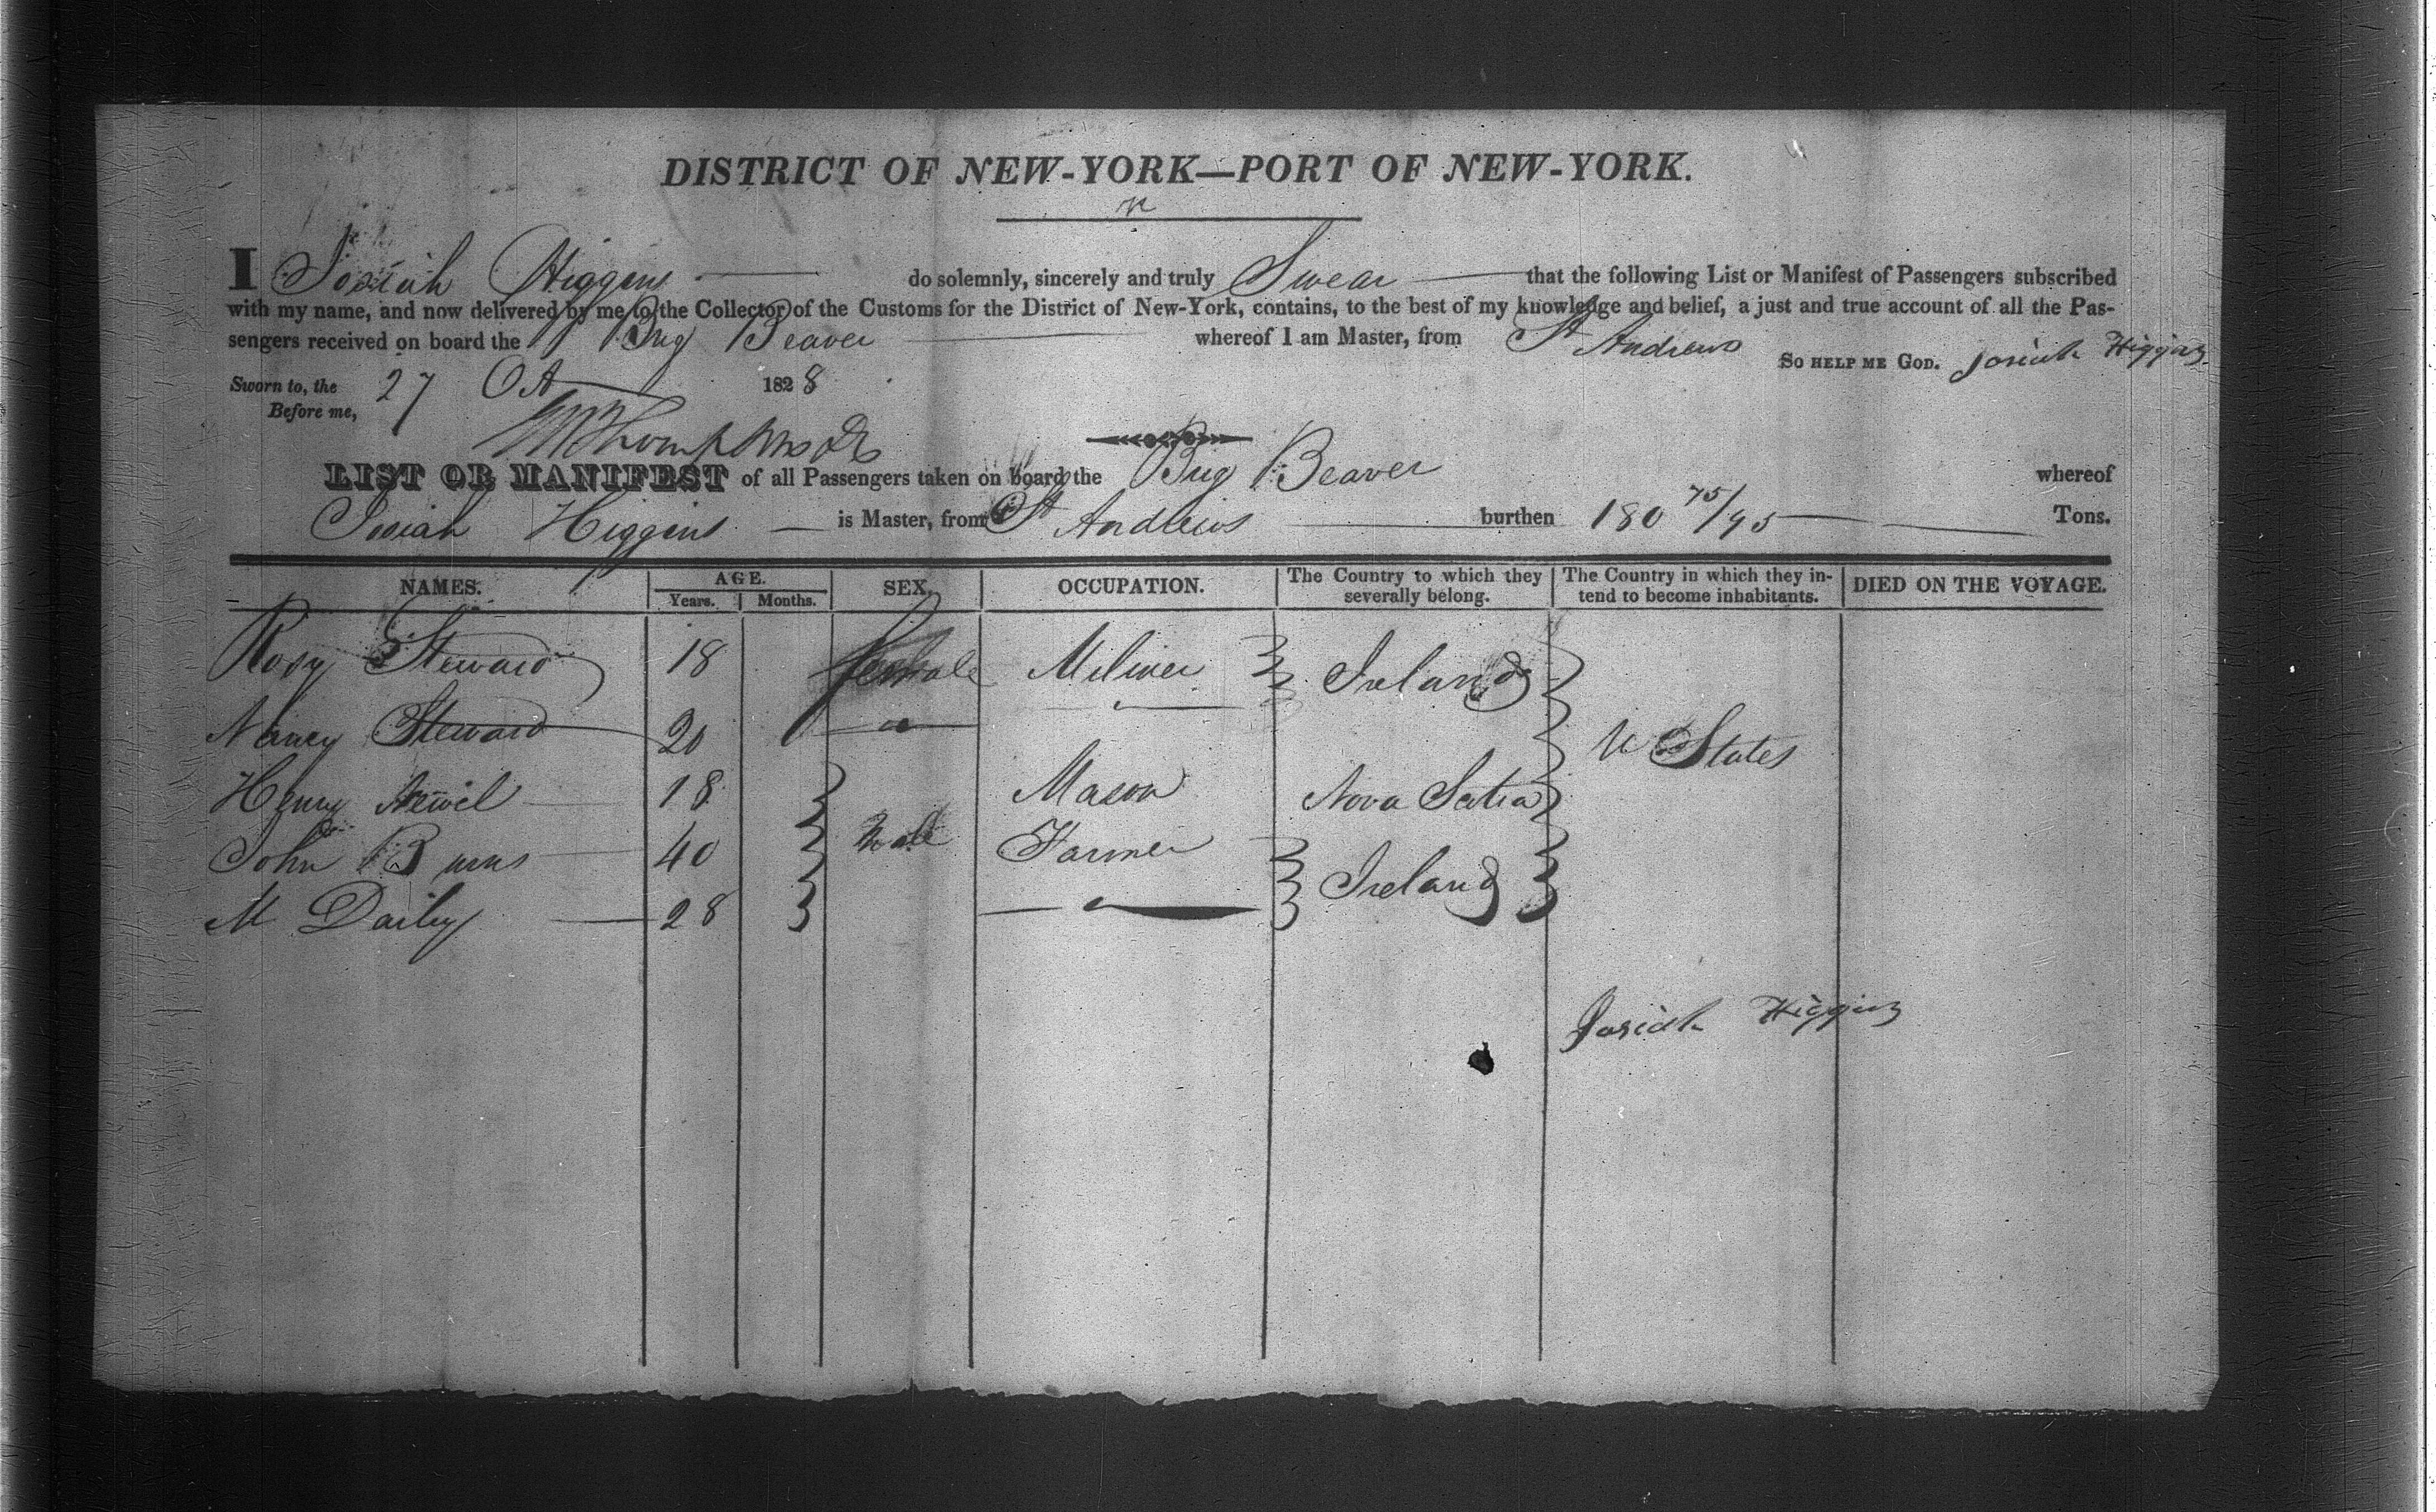 DISTRICT OF NEW-YORK—PORT OF NEW-YORK.
I Josiah Higgins do solemnly, sincerely and truly Swear that the following List or Manifest of Passengers subscribed
with my name, and now delivered by me to the Collector of the Customs for the District of New-York, contains, to the best of my knowledge and belief, a just and true account of all the Pas-
sengers received on board the Brig Beaver whereof I am Master, from St Andrews
So HELP ME GOD. Josiah Higgins
Sworn to, the 27 Oct 1828
Before me,
LIST OR MANIFEST of all Passengers taken on board the Brig Beaver whereof
Josiah Higgins is Master, from St Andrews burthen 180 75/95 Tons.
NAMES. AGE. Years. Months. SEX. OCCUPATION. The Country to which they severally belong. The Country in which they in-tend to become inhabitants. DIED ON THE VOYAGE.
Rosy Steward 18 female Miliner Ireland
Nancy Steward 20 U States
Henry Newil 18 Mason Nova Scotia
John Burns 40 Male Farmer
M Dailey 28 Ireland
Josiah Higgins